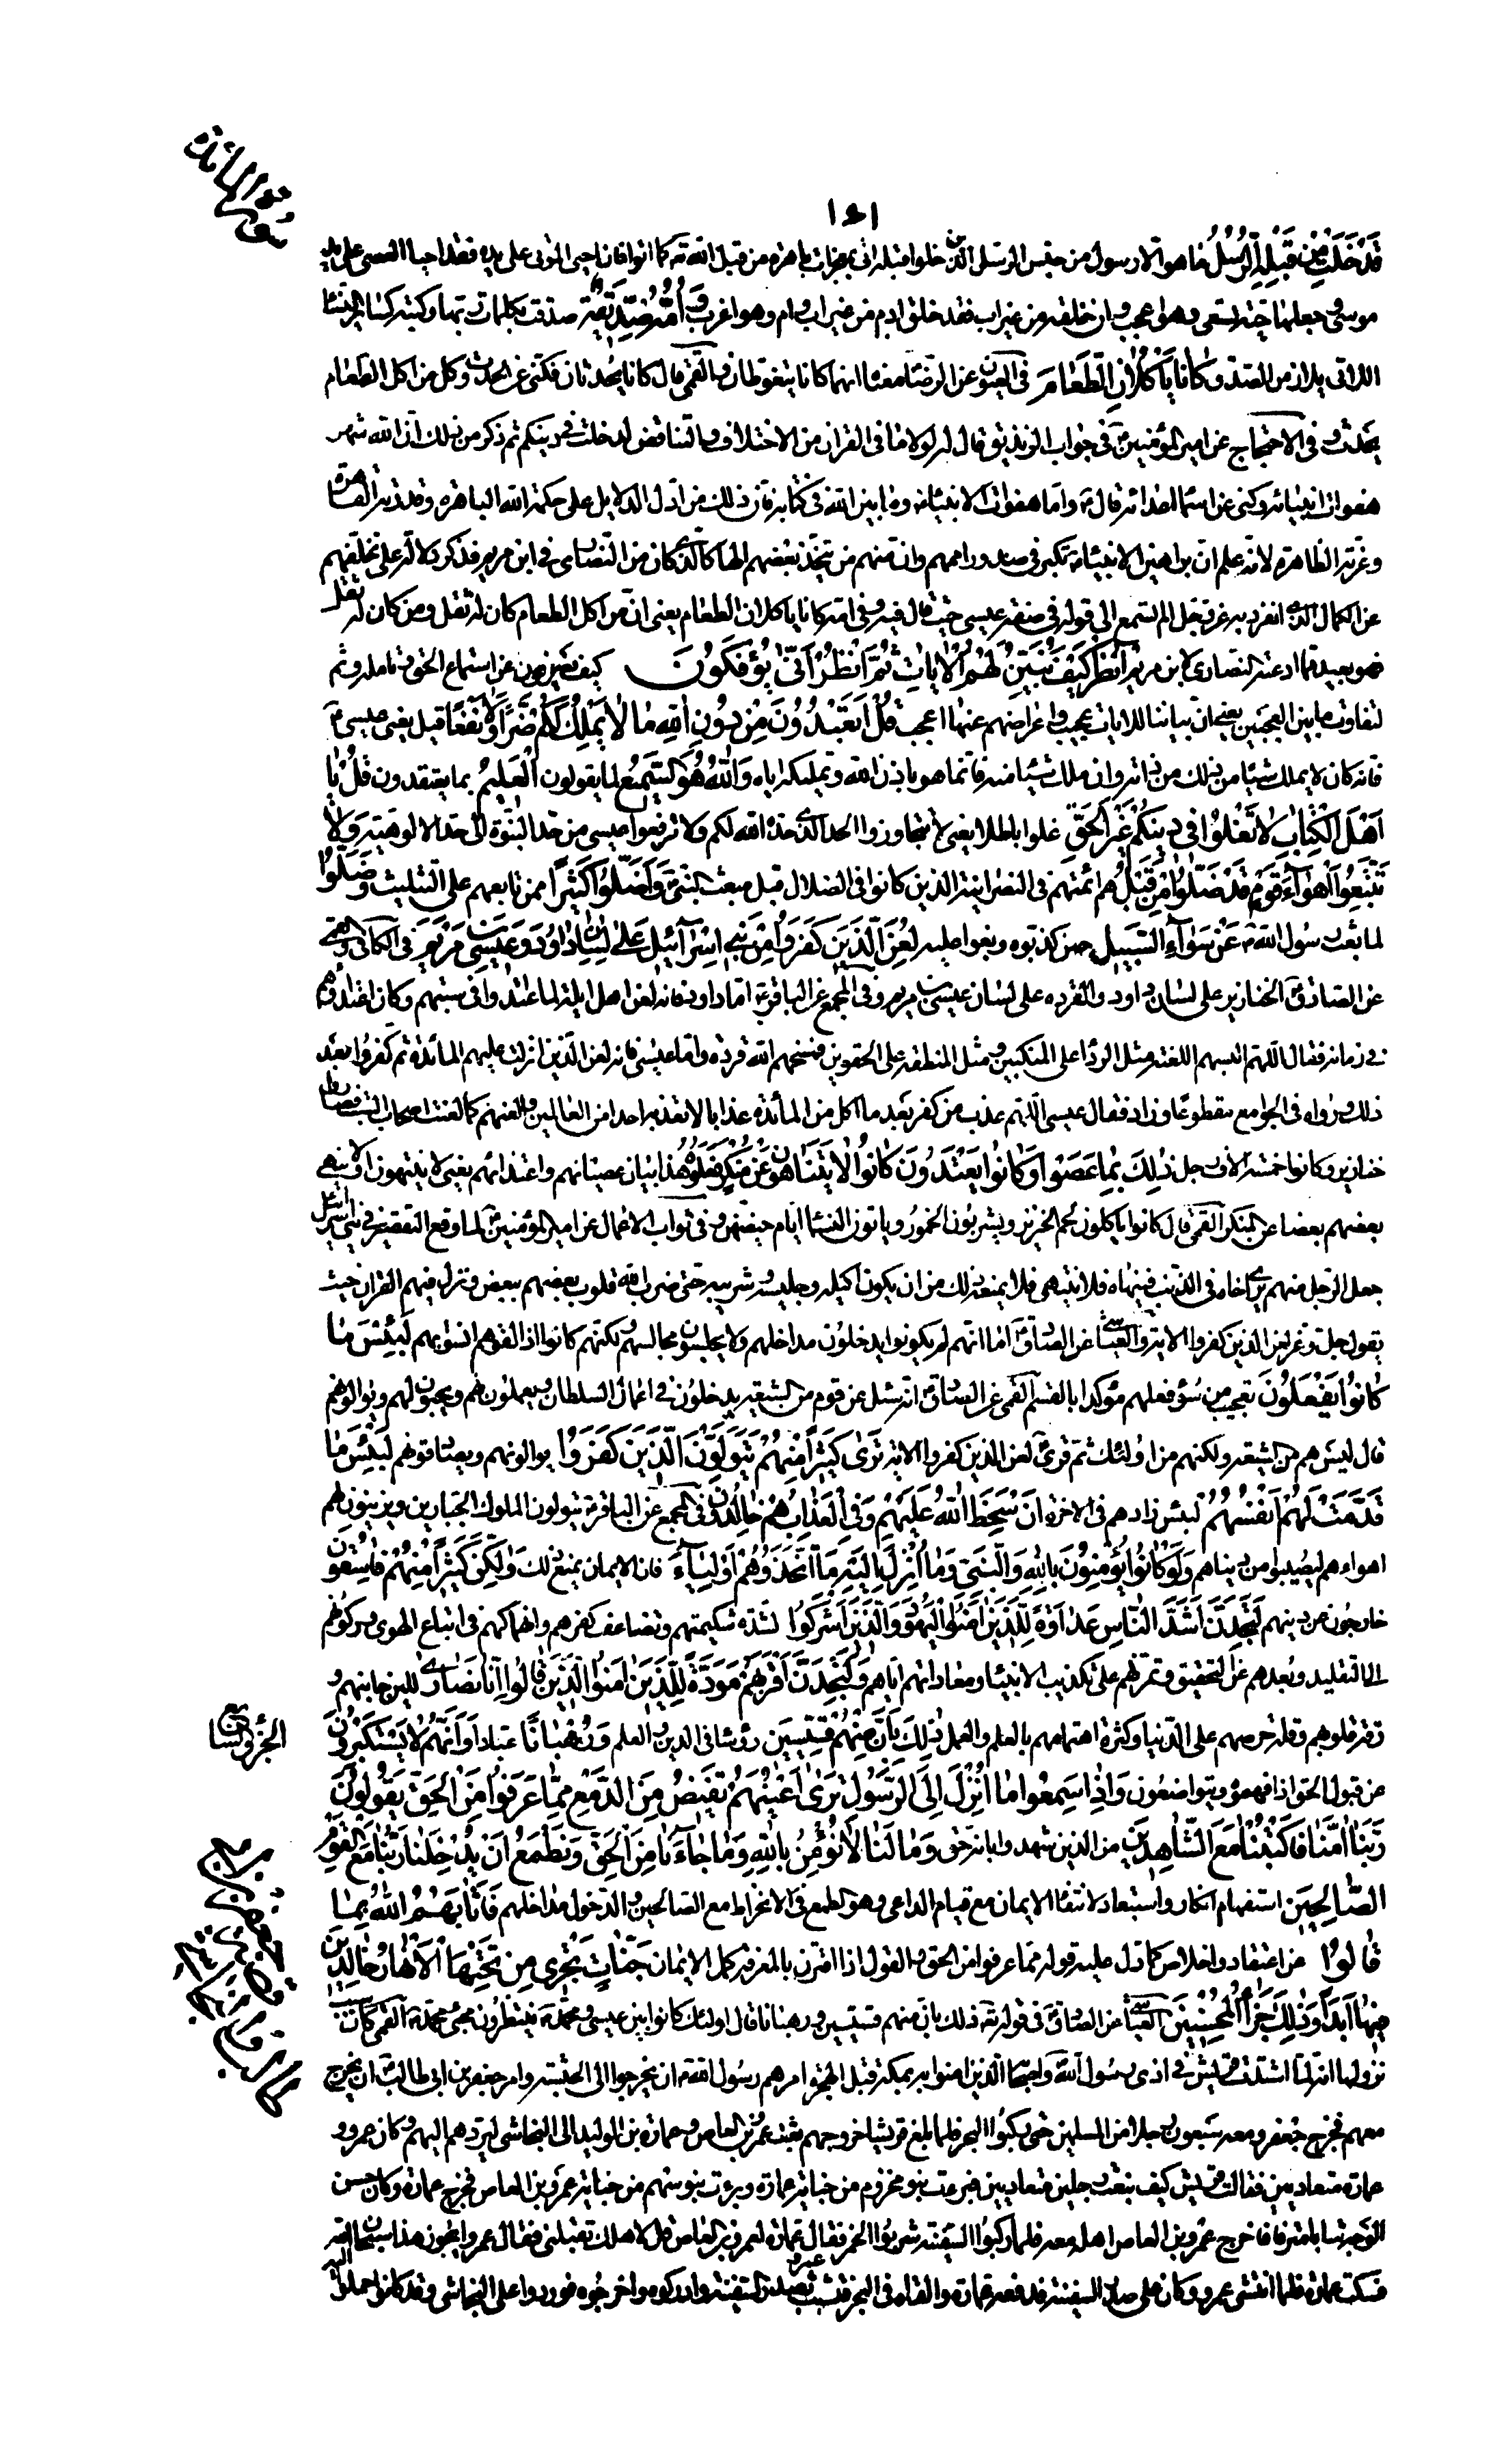 سورة المائدة
١٥١
قَدْ خَلَتْ مِنْ قَبْلِهِ الرُّسُلُ ما هو الا رسول من جنس الرسل الذين خلوا قبله اتى بمعجزات باهرة من قبل الله تع كما اتوا فان احيى الموتى على يده فقد احيا العصى على يد
موسى وجعلها حية تسعى وهو اعجب وان خلقه من غير اب فقد خلق ادم من غير اب وام وهو اغرب وَاُمُّهُ صِدِّيقَةٌ صدقت بكلمات ربها وكتبه كسائر النساء
اللاتى يلازمن الصدق كانا يَأْكُلانِ الطَّعامَ فى العيون عن الرضا معناه انهما كانا يتغوطان والقمى قال كانا يحدثان فكنى عن الحدث وكل من اكل الطعام
يحدث وفى الاحتجاج عن امير المؤمنين فى جواب الزنديق قال له لولا ما فى القران من الاختلاف والتناقض لدخلت فى دينكم ثم ذكر من ذلك ان الله شهر
هفوات انبيائه وكنى عن اسماء اعدائه قال واما هفوات الانبياء وما بين الله فى كتابه فان ذلك من ادل الدلايل على حكمة الله الباهرة وقدرته القاهرة
وعزته الظاهرة لانه علم ان براهين الانبياء تكبر فى صدور اممهم وان منهم من يتخذ بعضهم الها كالذى كان من النصارى فى ابن مريم فذكر دلالة على تخلفهم
عن الكمال الذى انفرد به عز وجل الم تسمع الى قوله فى صفة عيسى حيث قال فيه وفى امه كانا ياكلان الطعام يعنى ان من اكل الطعام كان له ثفل ومن كان له ثفل
فهو بعيد مما ادعته النصارى لابن مريم اُنْظُرْ كَيْفَ نُبَيِّنُ لَهُمُ الْاياتِ ثُمَّ انْظُرْ اَنّى يُؤْفَكُونَ كيف يصرفون عن استماع الحق وتامله وثم
لتفاوت ما بين العجبين يعنى ان بياننا للايات عجيب واعراضهم عنها اعجب قُلْ اَتَعْبُدُونَ مِنْ دُونِ اللّهِ ما لا يَمْلِكُ لَكُمْ ضَرًّا وَلا نَفْعًا قيل يعنى عيسى
فانه كان لا يملك شيئا من ذلك من ذاته وان ملك شيئا منه فانما هو باذن الله وتمليكه اياه وَاللّهُ هُوَ السَّميعُ لما يقولون الْعَليمُ بما يعتقدون قُلْ يا
اَهْلَ الْكِتابِ لا تَغْلُوا فى دينِكُمْ غَيْرَ الْحَقِّ غلوا باطلا يعنى لا تتجاوزوا الحد الذى حده الله لكم ولا ترفعوا عيسى من حد النبوة الى حد الالوهية وَلا
تَتَّبِعُوا اَهْواءَ قَوْمٍ قَدْ ضَلُّوا مِنْ قَبْلُ هم ائمتهم فى النصرانية الذين كانوا فى الضلال قبل مبعث النبى وَاَضَلُّوا كَثيرًا ممن تابعهم على التثليث وَضَلُّوا
لما بعث رسول الله عَنْ سَواءِ السَّبيلِ حين كذبوه وبغوا عليه لُعِنَ الَّذينَ كَفَرُوا مِنْ بَنى اِسْرائيلَ عَلى لِسانِ داوُدَ وَعيسَى بْنِ مَرْيَمَ فى الكافى والقمى
عن الصادق الخنازير على لسان داود والقردة على لسان عيسى بن مريم وفى المجمع عن الباقر اما داود فانه لعن اهل ايلة لما اعتدوا فى سبتهم وكان اعتداؤهم
فى زمانه فقال اللهم البسهم اللعنة مثل الرداء على المنكبين ومثل المنطقة على الحقوين فمسخهم الله قردة واما عيسى فانه لعن الذين انزلت عليهم المائدة ثم كفروا بعد
ذلك ورواه فى الجوامع مقطوعا وزاد فقال عيسى اللهم عذب من كفر بعد ما اكل من المائدة عذابا لا تعذبه احدا من العالمين والعنهم كما لعنت اصحاب السبت فصاروا
خنازير وكانوا خمسة الاف رجل ذلِكَ بِما عَصَوْا وَكانُوا يَعْتَدُونَ كانُوا لا يَتَناهَوْنَ عَنْ مُنْكَرٍ فَعَلُوهُ هذا بيان عصيانهم واعتدائهم يعنى لا ينتهون او لا ينهى
بعضهم بعضا عن المنكر القمى قال كانوا ياكلون لحم الخنزير ويشربون الخمور وياتون النساء ايام حيضهن وفى ثواب الاعمال عن امير المؤمنين لما وقع التقصير فى بنى اسرائيل
جعل الرجل منهم يرى اخاه فى الذنب فينهاه فلا ينتهى فلا يمنعه ذلك من ان يكون اكيله وجليسه وشريبه حتى ضرب الله قلوب بعضهم ببعض ونزل فيهم القران حيث
يقول جل وعز لعن الذين كفروا الاية والعياشى عن الصادق اما انهم لم يكونوا يدخلون مداخلهم ولا يجلسون مجالسهم ولكنهم كانوا اذا لقوهم انسوا بهم لَبِئْسَ ما
كانُوا يَفْعَلُونَ تعجيب من سوء فعلهم مؤكدا بالقسم القمى عن الصادق انه سئل عن قوم من الشيعة يدخلون فى اعمال السلطان ويعملون لهم ويحبون لهم ويوالونهم
قال ليس هم من الشيعة ولكنهم من اولئك ثم قرئ لعن الذين كفروا الاية تَرى كَثيرًا مِنْهُمْ يَتَوَلَّوْنَ الَّذينَ كَفَرُوا يوالونهم ويصادقونهم لَبِئْسَ ما
قَدَّمَتْ لَهُمْ اَنْفُسُهُمْ لبئس زادهم فى الاخرة اَنْ سَخِطَ اللّهُ عَلَيْهِمْ وَفِى الْعَذابِ هُمْ خالِدُونَ فى المجمع عن الباقر يتولون الملوك الجبارين ويزينون لهم
اهواءهم ليصيبوا من دنياهم وَلَوْ كانُوا يُؤْمِنُونَ بِاللّهِ وَالنَّبِىِّ وَما اُنْزِلَ اِلَيْهِ مَا اتَّخَذُوهُمْ اَوْلِياءَ فان الايمان يمنع ذلك وَلكِنَّ كَثيرًا مِنْهُمْ فاسِقُونَ
خارجون عن دينهم لَتَجِدَنَّ اَشَدَّ النّاسِ عَداوَةً لِلَّذينَ امَنُوا الْيَهُودَ وَالَّذينَ اَشْرَكُوا لشدة شكيمتهم وتضاعف كفرهم وانهماكهم فى اتباع الهوى وركونهم
الى التقليد وبعدهم عن التحقيق وتمرنهم على تكذيب الانبياء ومعاداتهم اياهم وَلَتَجِدَنَّ اَقْرَبَهُمْ مَوَدَّةً لِلَّذينَ امَنُوا الَّذينَ قالُوا اِنّا نَصارى للين جانبهم و
رقة قلوبهم وقلة حرصهم على الدنيا وكثرة اهتمامهم بالعلم والعمل ذلِكَ بِاَنَّ مِنْهُمْ قِسّيسينَ رؤساء فى الدين والعلم وَرُهْبانًا عبادا وَاَنَّهُمْ لا يَسْتَكْبِرُونَ
الجزؤ السابع
عن قبول الحق اذا فهموه ويتواضعون وَاِذا سَمِعُوا ما اُنْزِلَ اِلَى الرَّسُولِ تَرى اَعْيُنَهُمْ تَفيضُ مِنَ الدَّمْعِ مِمّا عَرَفُوا مِنَ الْحَقِّ يَقُولُونَ
رَبَّنا امَنّا فَاكْتُبْنا مَعَ الشّاهِدينَ من الذين شهدوا بانه حق وَما لَنا لا نُؤْمِنُ بِاللّهِ وَما جاءَنا مِنَ الْحَقِّ وَنَطْمَعُ اَنْ يُدْخِلَنا رَبُّنا مَعَ الْقَوْمِ
الصّالِحينَ استفهام انكار واستبعاد لانتفاء الايمان مع قيام الداعى وهو الطمع فى الانخراط مع الصالحين والدخول مداخلهم فَاَثابَهُمُ اللّهُ بِما
قالُوا عن اعتقاد واخلاص كما دل عليه قوله مما عرفوا من الحق والقول اذا اقترن بالمعرفة كمل الايمان جَنّاتٍ تَجْرى مِنْ تَحْتِهَا الْاَنْهارُ خالِدينَ
فيها اَبَدًا وَذلِكَ جَزاءُ الْمُحْسِنينَ العياشى عن الصادق فى قوله تع ذلك بان منهم قسيسين ورهبانا قال اولئك كانوا بين عيسى ومحمد ينتظرون مجئ محمد القمى كان سبب
نزولها انه لما اشتدت قريش فى اذى رسول الله واصحابه الذين امنوا به بمكة قبل الهجرة امرهم رسول الله ان يخرجوا الى الحبشة وامر جعفر بن ابى طالب ان يخرج
معهم فخرج جعفر ومعه سبعون رجلا من المسلمين حتى ركبوا البحر فلما بلغ قريشا خروجهم بعثوا عمرو بن العاص وعمارة بن الوليد الى النجاشى ليردهم اليهم وكان عمرو و
عمارة متعاديين فقالت قريش كيف نبعث رجلين متعاديين فبرءت بنو مخزوم من جناية عمارة وبرءت بنو سهم من جناية عمرو بن العاص فخرج عمارة وكان حسن
الوجه شابا مترفا فاخرج عمرو بن العاص اهله معه فلما ركبوا السفينة شربوا الخمر فقال عمارة لعمرو بن العاص قل لاهلك تقبلنى فقال عمرو ايجوز هذا سبحان الله
فسكت عمارة فلما انتشى عمرو وكان على صدر السفينة فدفعه عمارة والقاه فى البحر فتشبث عمرو بصدر السفينة وادركوه واخرجوه فوردوا على النجاشى وقد كانوا حملوا اليه